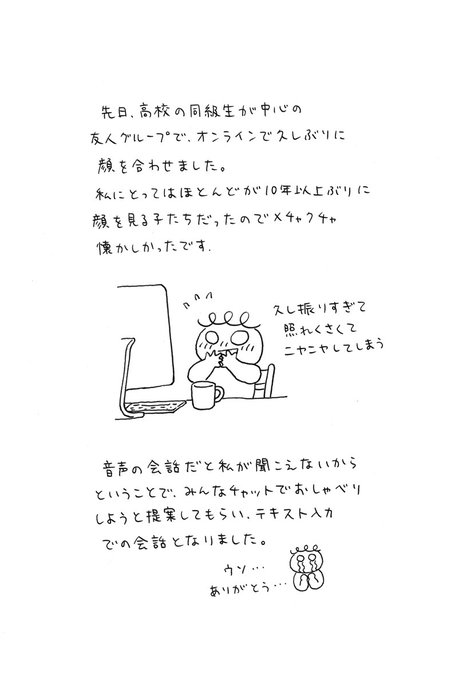 先日、高校の同級生が中心の
友人グループで、オンラインで久しぶりに
顔を合わせました。
私にとってはほとんどが10年以上ぶりに
顔を見る子たちだったのでメチャクチャ
懐かしかったです.
久し振りすぎて
照れくさくて
ニヤニヤしてしまう
音声の会話だと私が聞こえないから
ということで、みんなチャットでおしゃべり
しようと提案してもらい、テキスト入力
での会話となりました。
ウソ…
ありがとう…